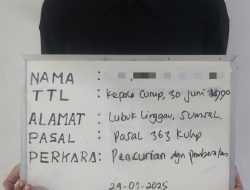 NAMA :
TTL : Kepala Curup, 30 Juni 1990
ALAMAT : Lubuk Linggau, Sumsel,
PASAL : Pasal 363 KUHP
PERKARA : Pencurian dgn Pemberatan
29-03-2025